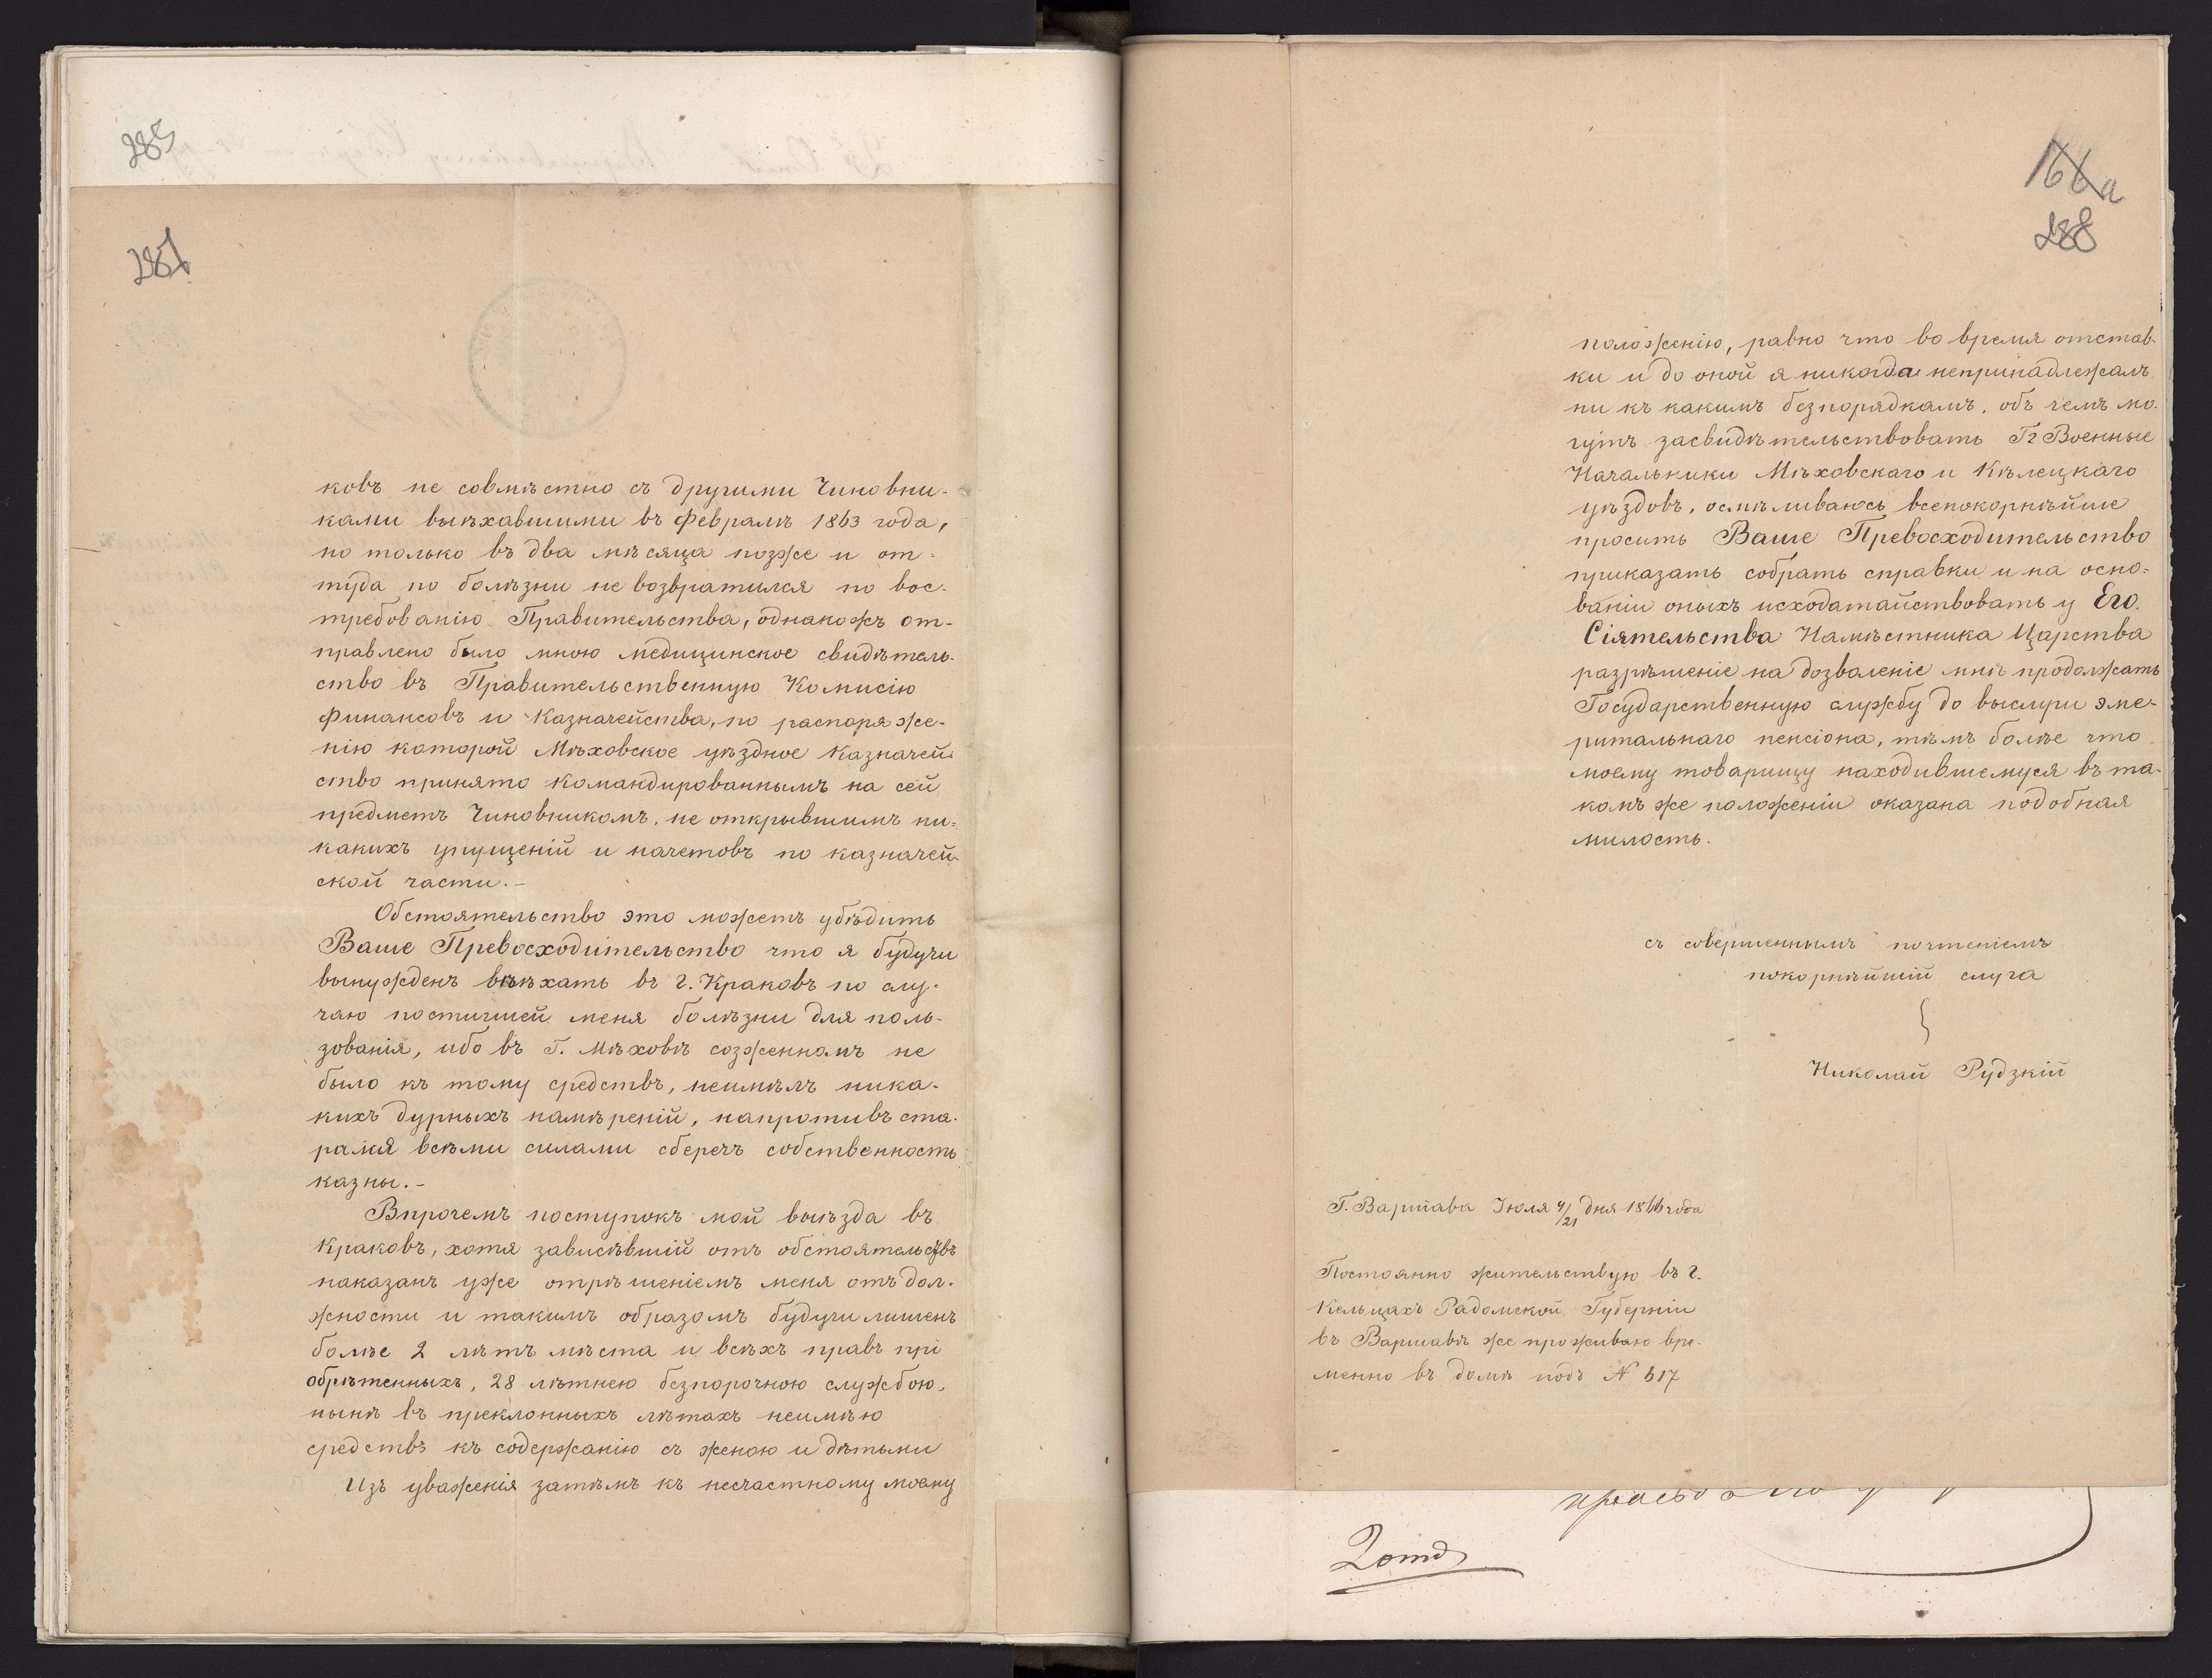 285
287
ковъ не совмѣстно съ другими Чиновни-
ками выѣхавшими въ Февралѣ 1863 года,
но только въ два мѣсяца позже и от-
туда по болѣзни не возвратился по вос-
требованію Правительства, однакожъ от-
правлено было мною медицинское свидѣтель-
ство въ Правительственную Комисію
Финансовъ и Казначейства, по распоряже-
нію которой Мѣховское уѣздное Казначей-
ство принято командированнымъ на сей
предметъ Чиновникомъ, не открывшимъ ни-
какихъ упущеній и начетовъ по казначей-
ской части.-
Обстоятельство это можетъ убѣдить
Ваше Превосходительство что я будучи
вынужденъ выѣхать въ г. Краковъ по слу-
чаю постигшей меня болѣзни для поль-
зованія, ибо въ Г. Мѣховѣ созженномъ не
было къ тому средствъ, неимѣлъ ника-
кихъ дурныхъ намѣреній, напротивъ ста-
рался всѣми силами сберечъ собственность
казны.-
Впрочемъ поступокъ мой выѣзда въ
Краковъ, хотя зависѣвшій отъ обстоятельствъ
наказанъ уже отрѣшеніемъ меня отъ дол-
жности и такимъ образомъ будучи лишенъ
болѣе 2 лѣтъ мѣста и всѣхъ правъ прі
обрѣтенныхъ, 28 лѣтнею безпорочною службою,
нынѣ въ преклонныхъ лѣтахъ неимѣю
средствъ къ содержанію съ женою и дѣтьми
Изъ уваженія затѣмъ къ несчастному моему
166a
288
положенію, равно что во время отстав-
ки и до оной я никогда непринадлежалъ
ни къ какимъ безпорядкамъ, объ чемъ мо-
гутъ засвидѣтельствовать Гг Военные
Начальники Мѣховскаго и Кѣлецкаго
уѣздовъ, осмѣливаюсь всепокорнѣйше
просить Ваше Превосходительство
приказать собрать справки и на осно-
ваніи оныхъ исходатайствовать у Его
Сіятельства Намѣстника Царства
разрѣшеніе на дозваленіе мнѣ продолжать
Государственную службу до выслуги эме-
ритальнаго пенсіона, тѣмъ болѣе что
моему товарищу находившемуся въ та-
комъ же положеніи оказана подобная
милость.
съ совершеннымъ почтеніемъ
покорнѣйшій слуга
Николай Рудзкій
Г. Варшава Іюля 9/21 дня 1866 года
Постоянно жительствую въ г.
Кельцахъ Радомской Губерніи
въ Варшавѣ же проживаю вре-
менно въ домѣ подъ N 617